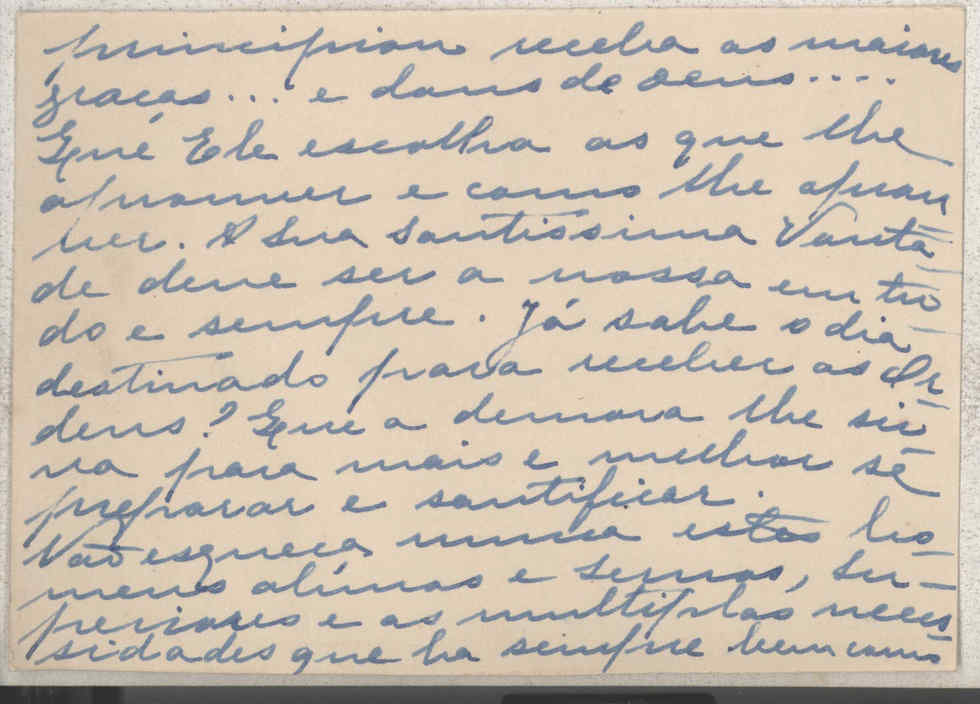 principiou receba as maiores
graças... e dons de Deus....
Que Ele escolha os que lhe
aprouver e como lhe aprou
ver. A Sua Santissima Vonta-
de deve ser a nossa em tu-
do e sempre. Já sabe o dia
destinado para receber as Or-
dens? Que a demora lhe sir-
va para mais e melhor se
preparar e santificar.
Não esqueça nunca estas
menos alunas e servas, Su-
periores e as multiplas neces
sidades que ha sempre bem como